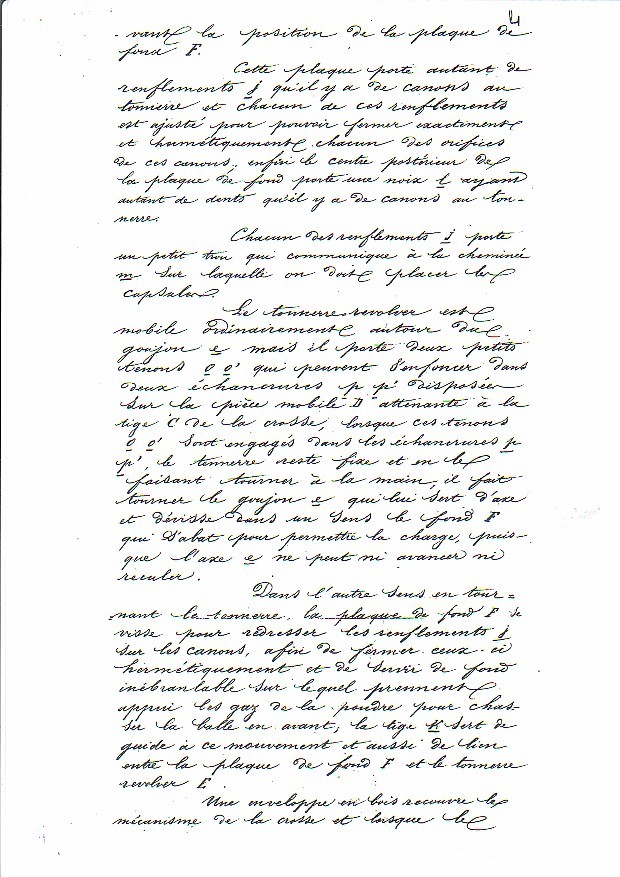 4
vant la position de la plaque de
fond F.
Cette plaque porte autant de
renflements j qu'il y a de canons au
tonnerre et chacun de ces renflements
est ajusté pour pouvoir fermer exactement
et hermétiquement chacun des orifices
de ces canons; enfin le centre postérieur de
la plaque de fond porte une noix l ayant
autant de dents qu'il y a de canons au ton-
nerre.
Chacun des renflements j porte
un petit trou qui communique à la cheminée
m sur laquelle on doit placer les
capsules.
Le tonnerre revolver est
mobile ordinairement autour du
goujon e mais il porte deux petits
tenons o o' qui peuvent s'enfoncer dans
deux échancrures p p' disposées
sur la pièce mobile D attenante à la
tige C de la crosse, lorsque ces tenons
o o' sont engagés dans les échancrures p
p', le tonnerre reste fixe et en le
faisant tourner à la main, il fait
tourner le goujon e qui lui sert d'axe
et dévisse dans un sens le fond F
qui s'abat pour permettre la charge, puis-
que l'axe e ne peut ni avancer ni
reculer.
Dans l'autre sens en tour=
=nant le tonnerre, la plaque de fond F se
visse pour redresser les renflements j
sur les canons, afin de fermer ceux-ci
hermétiquement et de servir de fond
inébranlable sur lequel prennent
appui les gaz de la poudre pour chas-
ser la balle en avant; la tige K sert de
guide à ce mouvement et aussi de lien
entre la plaque de fond F et le tonnerre
revolver E.
Une enveloppe en bois recouvre le
mécanisme de la crosse et lorsque le